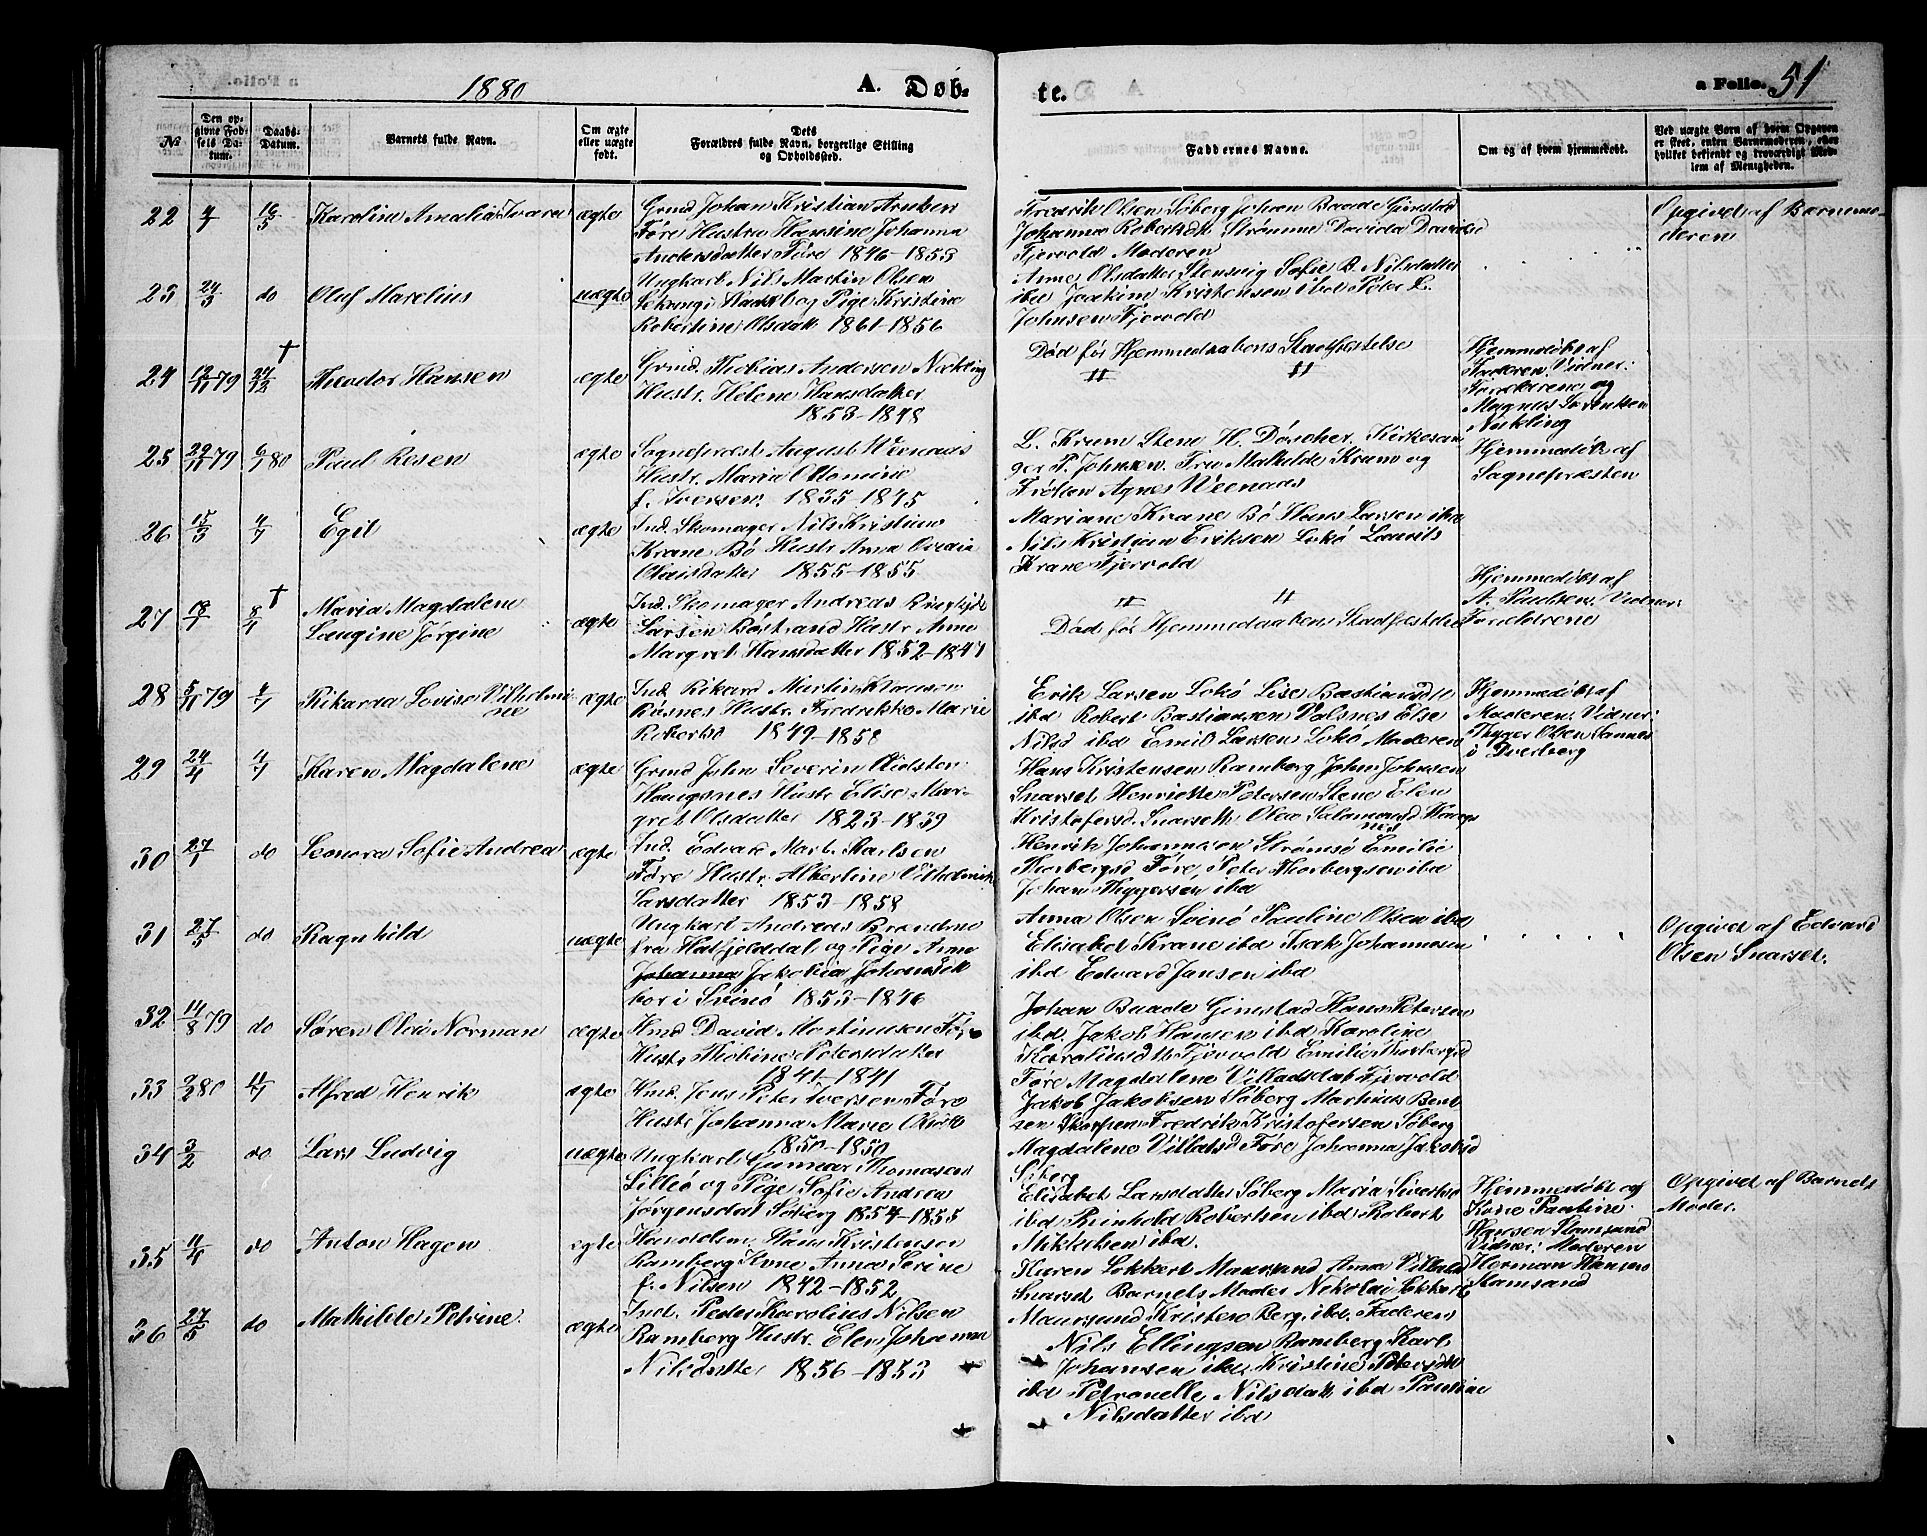 1880 A. Døb- te. a Folio. 51
№
Den opgivne Fødsels Datum.
Daabs-Datum.
Barnets fulde Navn.
Om ægte eller uægte født.
Dets Forældres fulde Navn, borgerlige Stilling og Opholdssted.
Faddernes Navne.
Om og af hvem hjemmedøbt.
Ved uægte Børn af hvem Opgaven er skeet, enten Barnemoderen, eller hvilket bekjendt og troværdigt Medlem af Menigheden.
22 Karoline Amalia ægte
Grmd Johan Kristian
Føre Hustru Hansine Johanna
Andersdatter Føre 1846-1853
Fredrik Olsen Søberg Johan Baade Gimstad
Johanna Robertsdt. Strømme Davida
Fjervold Moderen
Opgivet af Barnemo-
deren
23 24/3 do Oluf Marelius uægte
Ungkarl Nils Martin Olsen
og Pige Kristine
Robertine Olsdatt. 1861-1856
Anne Olsdatter Stensvig Sofie B. Nilsdatter
ibd Joakim Kristensen ibd Peter L.
Johnsen Fjervold
24 12/11 79 † 24/12 Theodor Hansen ægte
Grmd. Thobias Andersen Nykling
Hustr. Helene Hansdatter
1853-1848
Død før Hjemmedaabens Stadfæstelse
Hjemmedøbt af
Faderen. Vidner:
Forældrene og
Magnus Sørensen
Nykling
25 29/11 79 6/1 80 Paul Rosen ægte
Sogneprest August Weenaas
Hustr. Maria Ottomine
f. Iversen. 1835-1845
L. Krum Stene H. Döscher. Kirkesan-
ger P. Johnsen. Fru Mathilde Krum og
Frøken Agnes Weenaas
Hjemmedøbt af
Sognepræsten
26 15/3 4/7 Egil ægte
Ind. Skomager Nils Kristian
Krane Bø Hustr. Anna Ovedia
Olaisdatter 1855-1855
Mariane Krane Bø Hans Larsen ibd
Nils Kristian Eriksen Lokø Laurits
Krane Fjervold
27 18/1 † Maria Magdalene
Laugine Jørgine ægte
Ind. Skomager Andreas
Larsen Bøstrand Hustr Anne
Margret Hansdatter 1852-1847
Død før Hjemmedaabens Stadfæstelse
Hjemmedøbt af
A. Paulsen. Vidner:
Forældrene
28 5/11 79 4/7 Rikarda Lovise Vilhelmi-
ne ægte
Ind. Rikard Martin Klausen
Røsnes Hustr. Fredrikke Marie
Robertsd 1849-1858
Erik Larsen Lokø Lise Bastiansd
ibd Robert Bastiansen Valsnes Else
Nilsd ibd Emil Larsen Lokø Moderen
Hjemmedøbt af
Moderen. Vidner:
Thyger Olsen Sannes
i Dverberg
29 24/4 4/7 Karen Magdalene ægte
Grmd John Severin
Haugsnes Hustr Elise Mar-
gret Olsdatter 1823-1839
Hans Kristensen Ramberg John Johnsen
Snarset Henriette Petersen Stene Elen
Kristofersd. Snarset Olea Salamonsd Haugs-
nes
30 27/1 do Leonora Sofie Andrea ægte
Ind. Edvard Mart. Karlsen
Føre Hustr. Albertine Vilhelmine
Larsdatter 1853-1858
Henrik Johannesen Strømsø Emilie
Thorbergsd Føre, Peter Thorbergsen ibd
Johan Thygersen ibd
31 27/5 do Ragnhild uægte
Ungkarl Andreas
fra Hatfjelddal og Pige Anne
Johanna Jakobia Johansdt
bor i Svinø 1853-1846
Anna Olsen Svinø Pauline Olsen ibd
Elisabet Krane ibd Isak Johannesen
ibd Edvard Jansen ibd
Opgivet af Edvard
Olsen Snarset.
32 14/8 79 do Søren Olai Norman ægte
Hmd David Martinusen Føre
Hustr Thobine Petersdatter
1841-1841
Johan Baade Gimstad Hans Petersen
ibd. Jakob Hansen ibd Karoline
Karoliusdtt Fjervold Emilie Thorbergsd
Føre Magdalene Villadsdat Fjervold
33 2/2 80 11/7 Alfred Henrik ægte
Hmd. Jens Peter Iversen Føre
Hustr Johanna Marie
1850-1850
Jakob Jakobsen Søberg Mathias Bent-
sen Fredrik Kristofersen Søberg
Magdalene Villadsd Føre Johanna Jakobsd
Søberg
34 3/2 do Lars Ludvig uægte
Ungkarl Gunnar Thomasen
Lilleø og Pige Sofie Andrea
Jørgensdat Søberg 1854-1855
Elisabet Larsdatter Søberg Maria Sivertsd
ibd Reinhold Robertsen ibd Robert
Mikkelsen ibd.
Hjemmedøbt af
Kone Pauline
Hansen Stamsund
Vidner: Moderen
Herman Hansen
Stamsund
Opgivet af Barnets
Moder.
35 11/4 do Anton Hagen ægte
Handelsm. Hans Kristensen
Ramberg Kone Anna Serine
f. Nilsen 1842-1852
Karen Lokkert Maursund Anna
Snarset Barnets Moder Nikolai Lokkert
Maursund Kristen Berg ibd. Faderen
36 27/5 do Mathilde Petrine ægte
Ind. Peder Karolius Nilsen
Ramberg Hustr. Elen Johanna
Nilsdatter 1856-1853
Nils Ellingsen Ramberg Karl
Johansen ibd Kristine Petersdtt
ibd Petronelle Nilsdatt ibd Pauline
Nilsdatter ibd